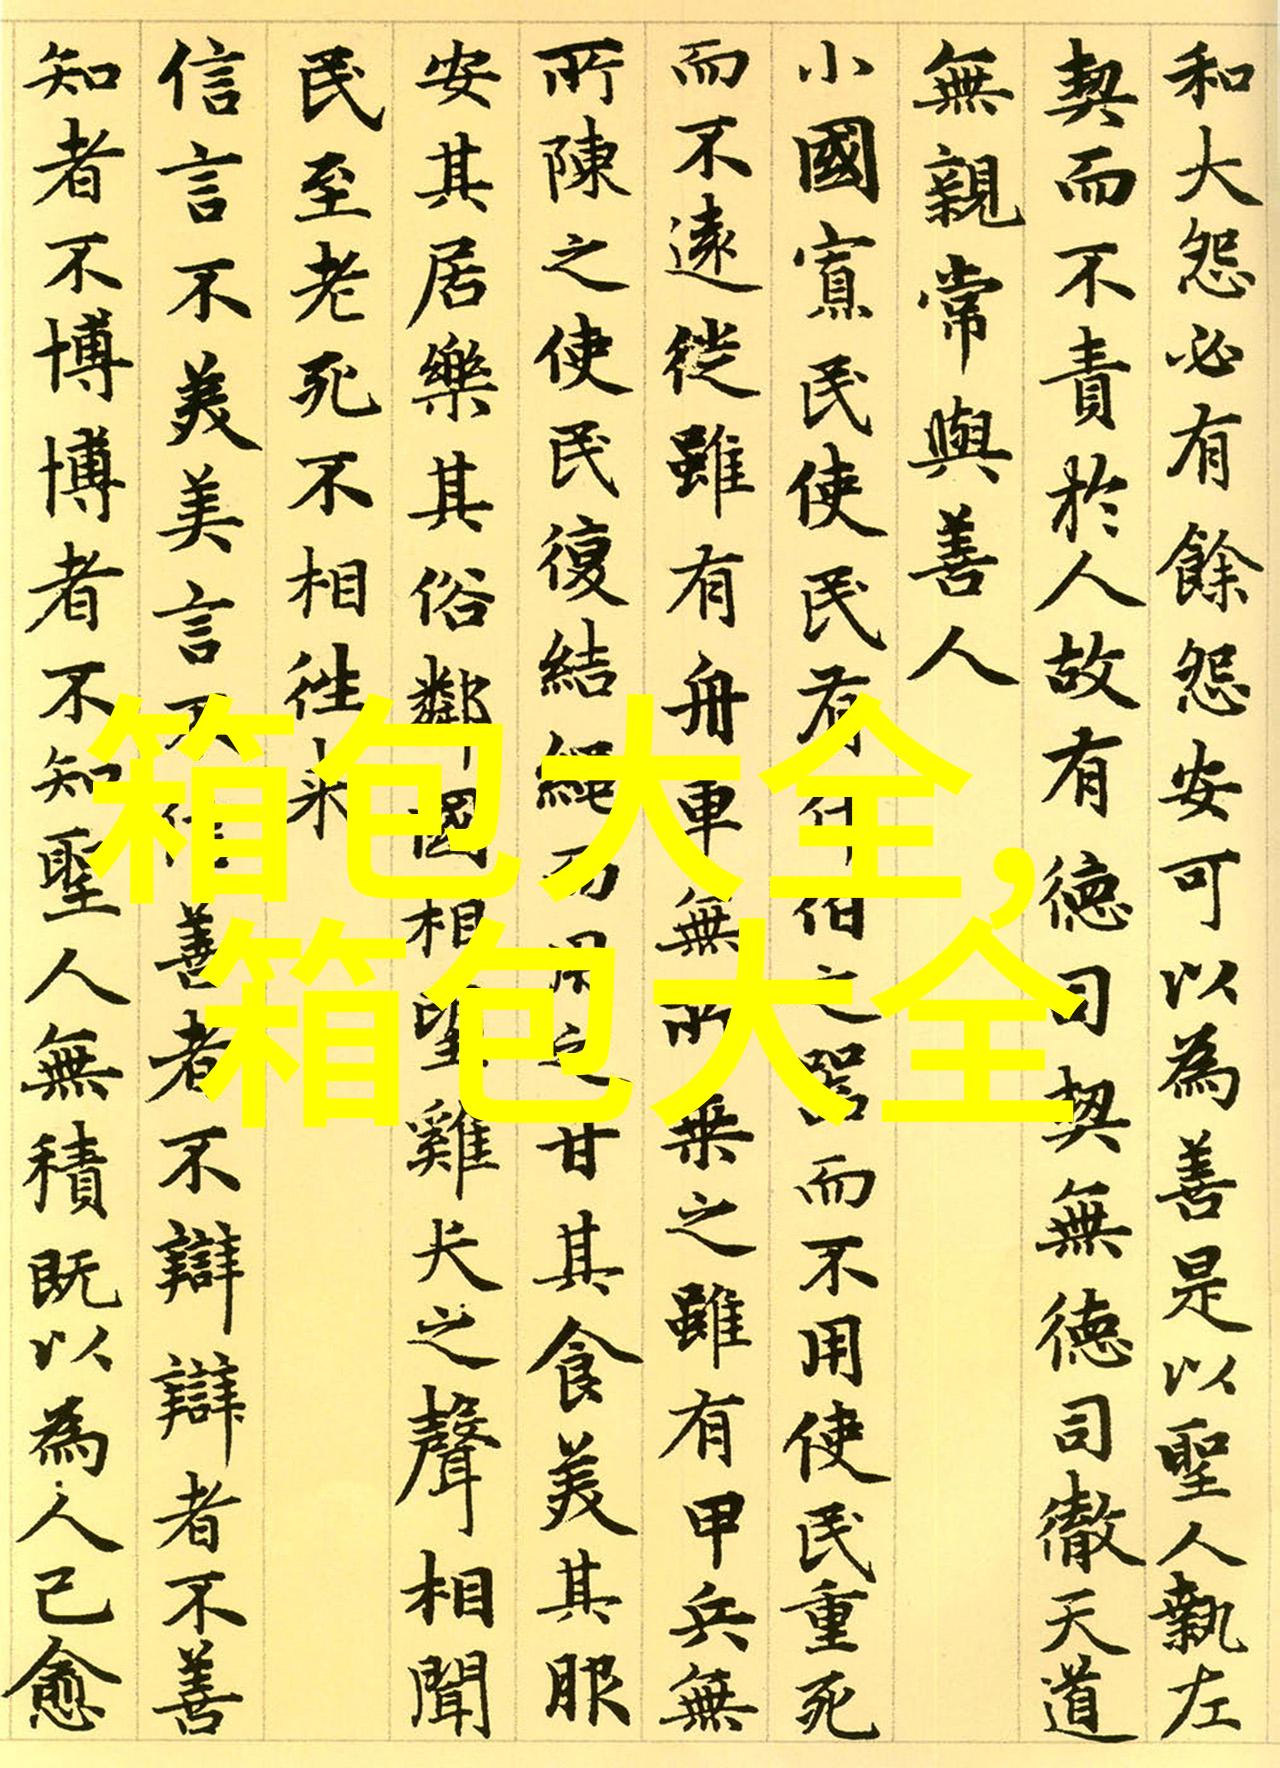 和大怨必有餘怨安可以為善是以聖人執左
契而不責於人故有德司契無德司徹天道
無親常與善人
小國寡民使民有什伯之器而不用使民重死
而不遠徙雖有舟車無所乗之雖有甲兵無
所陳之使民復結繩而用之甘其食美其服
安其居樂其俗鄰國相望雞犬之聲相聞
民至老死不相徃来
信言不美美言不信善者不辯辯者不善
知者不博博者不知聖人無積既以為人己愈
箱包大全，
箱包大全